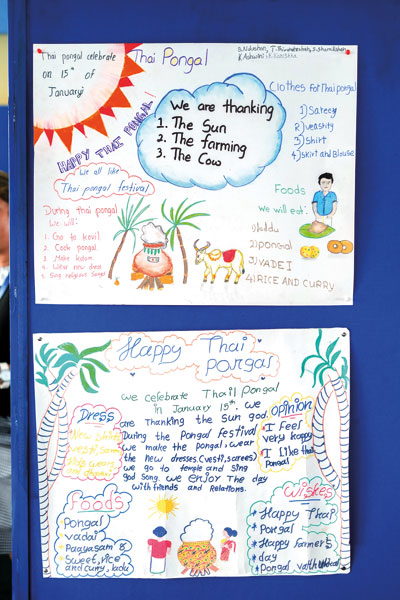 Thai pongal celebrate
on 15th of
January
Thai Pongal
HAPPY THAI PONGAL
We are thanking
1. The Sun
2. The farming
3. The Cow
Clothes for Thai pongal
1) Sareey
2) veashity
3) shirt
4) skirt and Blouse
We all like
Thai pongal festival
During thai pongal
We will:
1. Go to kovil
2. Cook pongal
3. Make kolam
4. Wear new dress
5. Sing religious songs
Foods
We will eat:
1) laddu
2) pongal
3) VADEI
4) RICE AND CURRY
Happy Thai
Pongal
we celebrate Thail Pongal
in January 15th. We
are Thanking the Sun god.
During the Pongal festival
we make the pongal, wear
the new dresses.(vesti, sarees)
we go to temple and sing
god Song. we enjoy The day
with friends and Relations.
Dress
New shirt
vesti,
opinion
I feel
very happy
I like that
Pongal
Foods
Pongal
vadai
Paayasam &
Sweet, rice
and curry, ladu
wishes
* Happy Thai
* Pongal
* Happy farmer's
* day
* Pongal